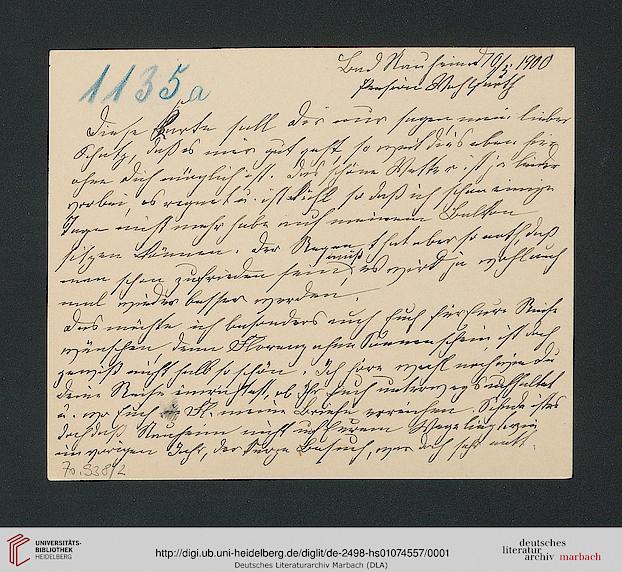 1135a
Bad Nauheim 19/5. 1900
Pension Wohlfarth
Diese Karte soll Dir nur sagen mein lieber
Schatz, daß es mir gut geht, so weit dies eben hier
ohne Dich möglich ist. Das schöne Wetter ist ja leider
vorbei, es regnet u. ist kühl so daß ich schon einige
Tage nicht mehr habe auf meinem Balkon
sitzen können. Der Regen that aber so noth, daß
man schon zufrieden sein muß, es wird ja wohl auch
mal wieder besser werden.
Das möchte ich besonders auch Euch für Eure Reise
wünschen, denn Florenz ohne Sonnenschein ist doch
gewiß nicht halb so schön. Ich höre wohl noch wie Du
Deine Reise einrichtest, ob Ihr Euch unterwegs aufhaltet
u. wo Euch in Fl. meine Briefe erreichen. Schade ist es
doch daß Nauheim nicht auf Eurem Wege liegt wie
im vorigen Jahr, der kurze Besuch, war doch sehr nett.
70.938/2
UNIVERSITÄTS-
BIBLIOTHEK
HEIDELBERG
http://digi.ub.uni-heidelberg.de/diglit/de-2498-hs01074557/0001
Deutsches Literaturarchiv Marbach (DLA)
deutsches
literatur
archiv marbach